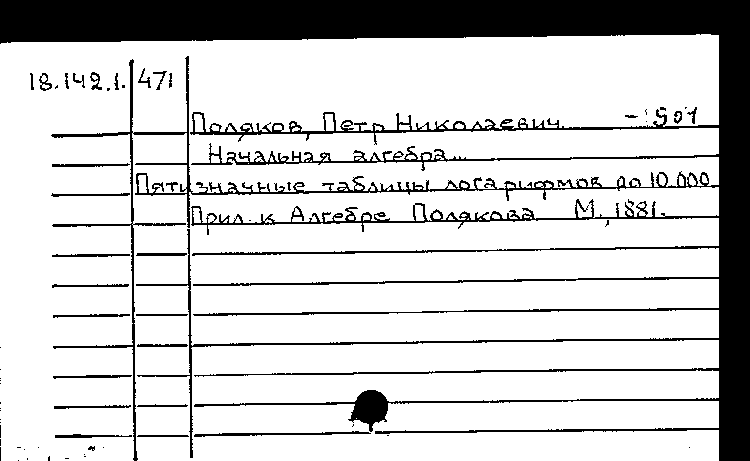 18.142.1. 471
Поляков, Петр Николаевич
Начальная алгебра...
Пятизначные таблицы логарифмов до 10.000.
Прил. к Алгебре Полякова М., 1881.